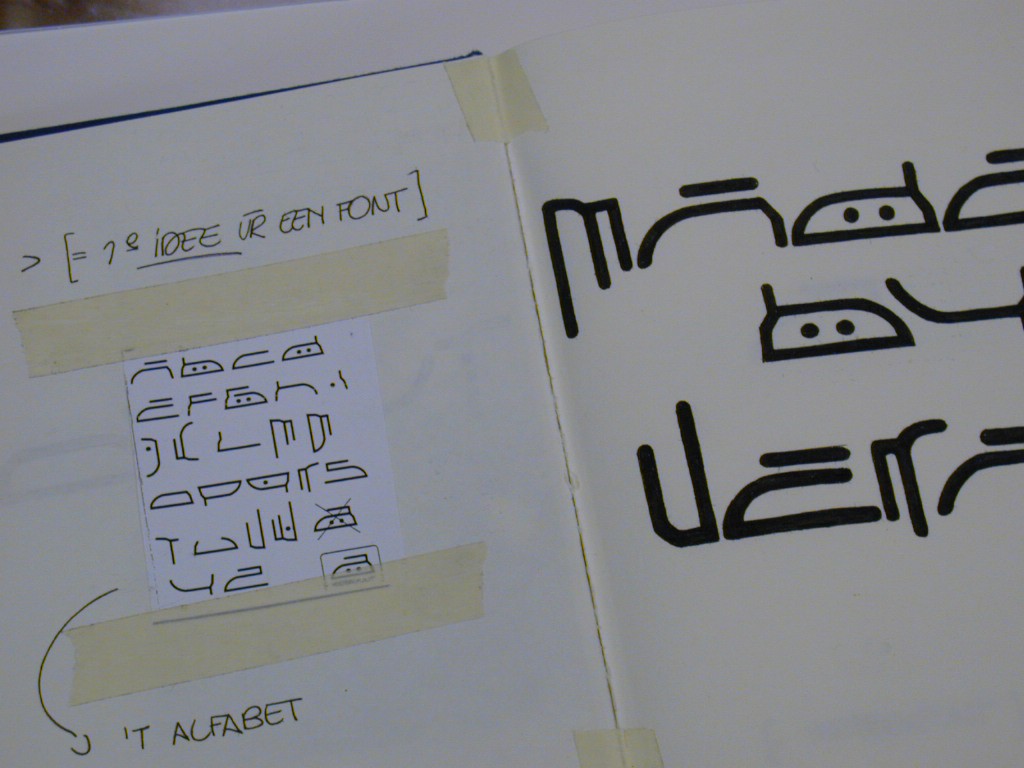 > [= 1e IDEE VR EEN FONT]
a b c d
e f g h i
j k l m n
o p q r s
t u v w x
y z
'T ALFABET
made
by
vera